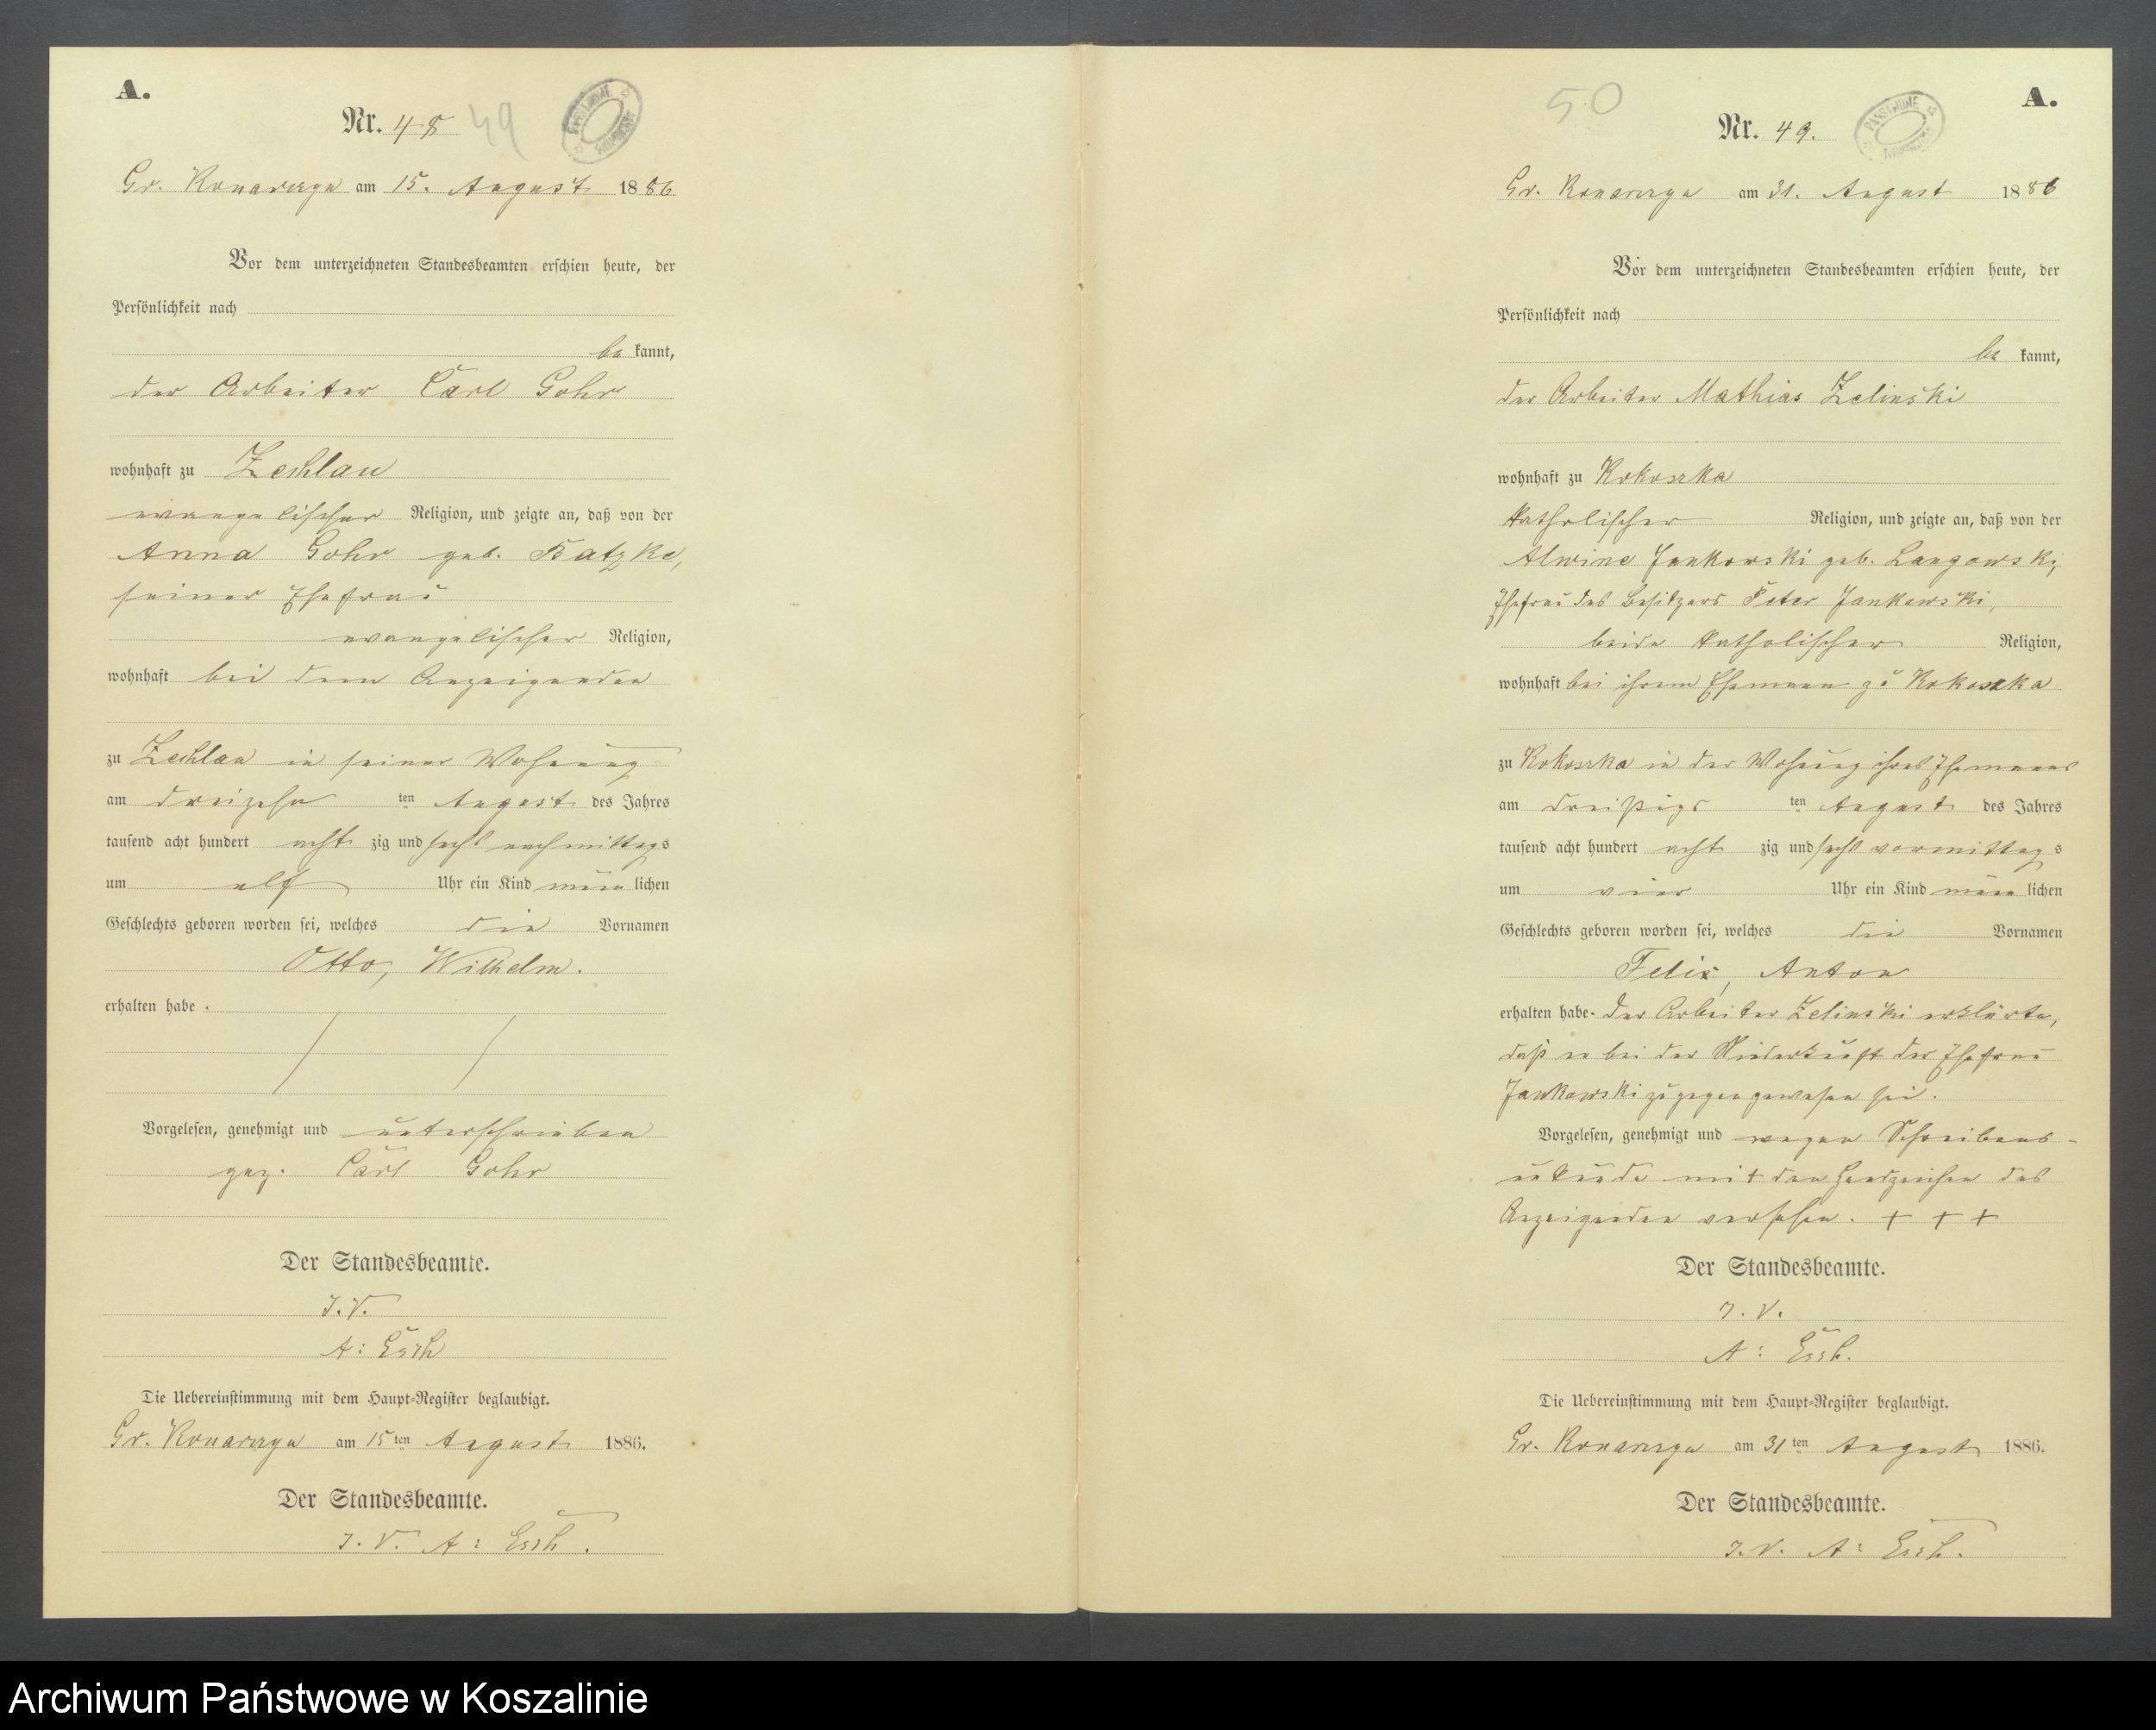 A.
Nr. 48 49
Gr. Konarczyn am 15. August 1886
Vor dem unterzeichneten Standesbeamten erschien heute, der
Persönlichkeit nach
be kannt,
der Arbeiter Carl Gohr
wohnhaft zu Zechlau
evangelischer Religion, und zeigte an, daß von der
Anna Gohr geb. Ratzke,
seiner Ehefrau
evangelischer Religion,
wohnhaft bei dem Anzeigenden
zu Zechlau in seiner Wohnung
am dreizehn ten August des Jahres
tausend acht hundert acht zig und sechs nachmittags
um elf Uhr ein Kind männ lichen
Geschlechts geboren worden sei, welches die Vornamen
Otto, Wilhelm.
erhalten habe.
Vorgelesen, genehmigt und unterschrieben
gez. Carl Gohr
Der Standesbeamte.
I. V.
A:
Die Uebereinstimmung mit dem Haupt-Register beglaubigt.
Gr. Konarczyn am 15ten August 1886.
Der Standesbeamte.
I. V. A:
50
A.
Nr. 49.
PAŃSTWOWE
Gr. Konarczyn am 31. August 1886
Vor dem unterzeichneten Standesbeamten erschien heute, der
Persönlichkeit nach
be kannt,
der Arbeiter Mathias Zelinski
wohnhaft zu Kokoszka
katholischer Religion, und zeigte an, daß von der
Alwine Jankowski geb. Langowski,
Ehefrau des Besitzers Peter Jankowski,
beide katholischer Religion,
wohnhaft bei ihrem Ehemann zu Kokoszka
zu Kokoszka in der Wohnung ihres Ehemannes
am dreißigs ten August des Jahres
tausend acht hundert acht zig und sechs vormittags
um vier Uhr ein Kind männ lichen
Geschlechts geboren worden sei, welches die Vornamen
Felix, Anton
erhalten habe. Der Arbeiter Zelinski erklärte,
daß er bei der Niederkunft der Ehefrau
Jankowski zugegen gewesen sei.
Vorgelesen, genehmigt und wegen Schreibens-
unkunde mit dem Handzeichen des
Anzeigenden versehen. + + +
Der Standesbeamte.
I. V.
A:
Die Uebereinstimmung mit dem Haupt-Register beglaubigt.
Gr. Konarczyn am 31ten August 1886.
Der Standesbeamte.
I. V. A:
Archiwum Państwowe w Koszalinie